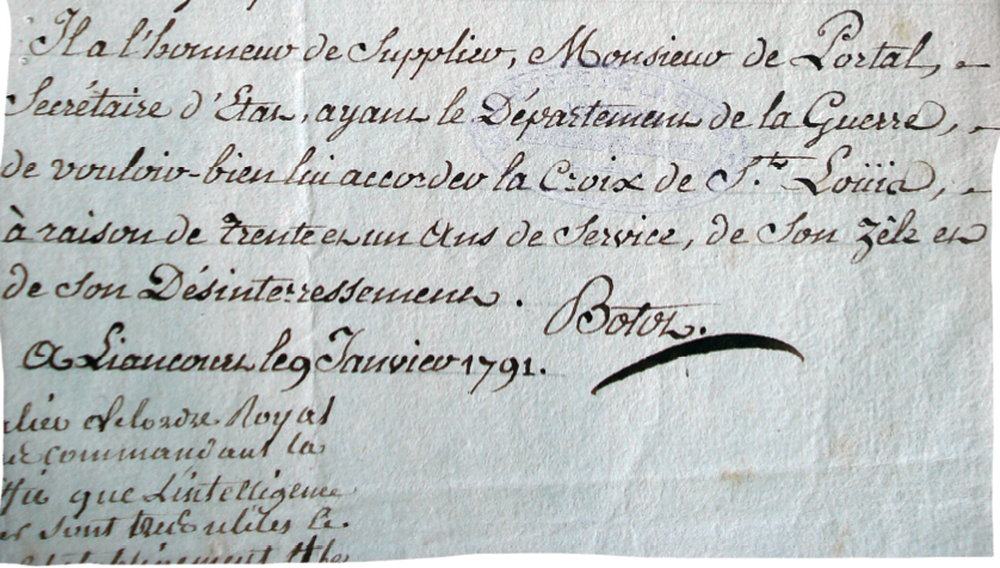 Il a l'honneur de Supplier, Monsieur de Portal, -
Secrétaire d'Etat, ayant le Département de la Guerre, -
de vouloir-bien lui accorder la Croix de S.te Loüis, -
à raison de trente et un Ans de Service, de Son zêle et
de Son Désinterressement. Botot.
A Liancourt le 9 Janvier 1791.
alier de lordre Royal
commandant la
que L'intelligence
sont